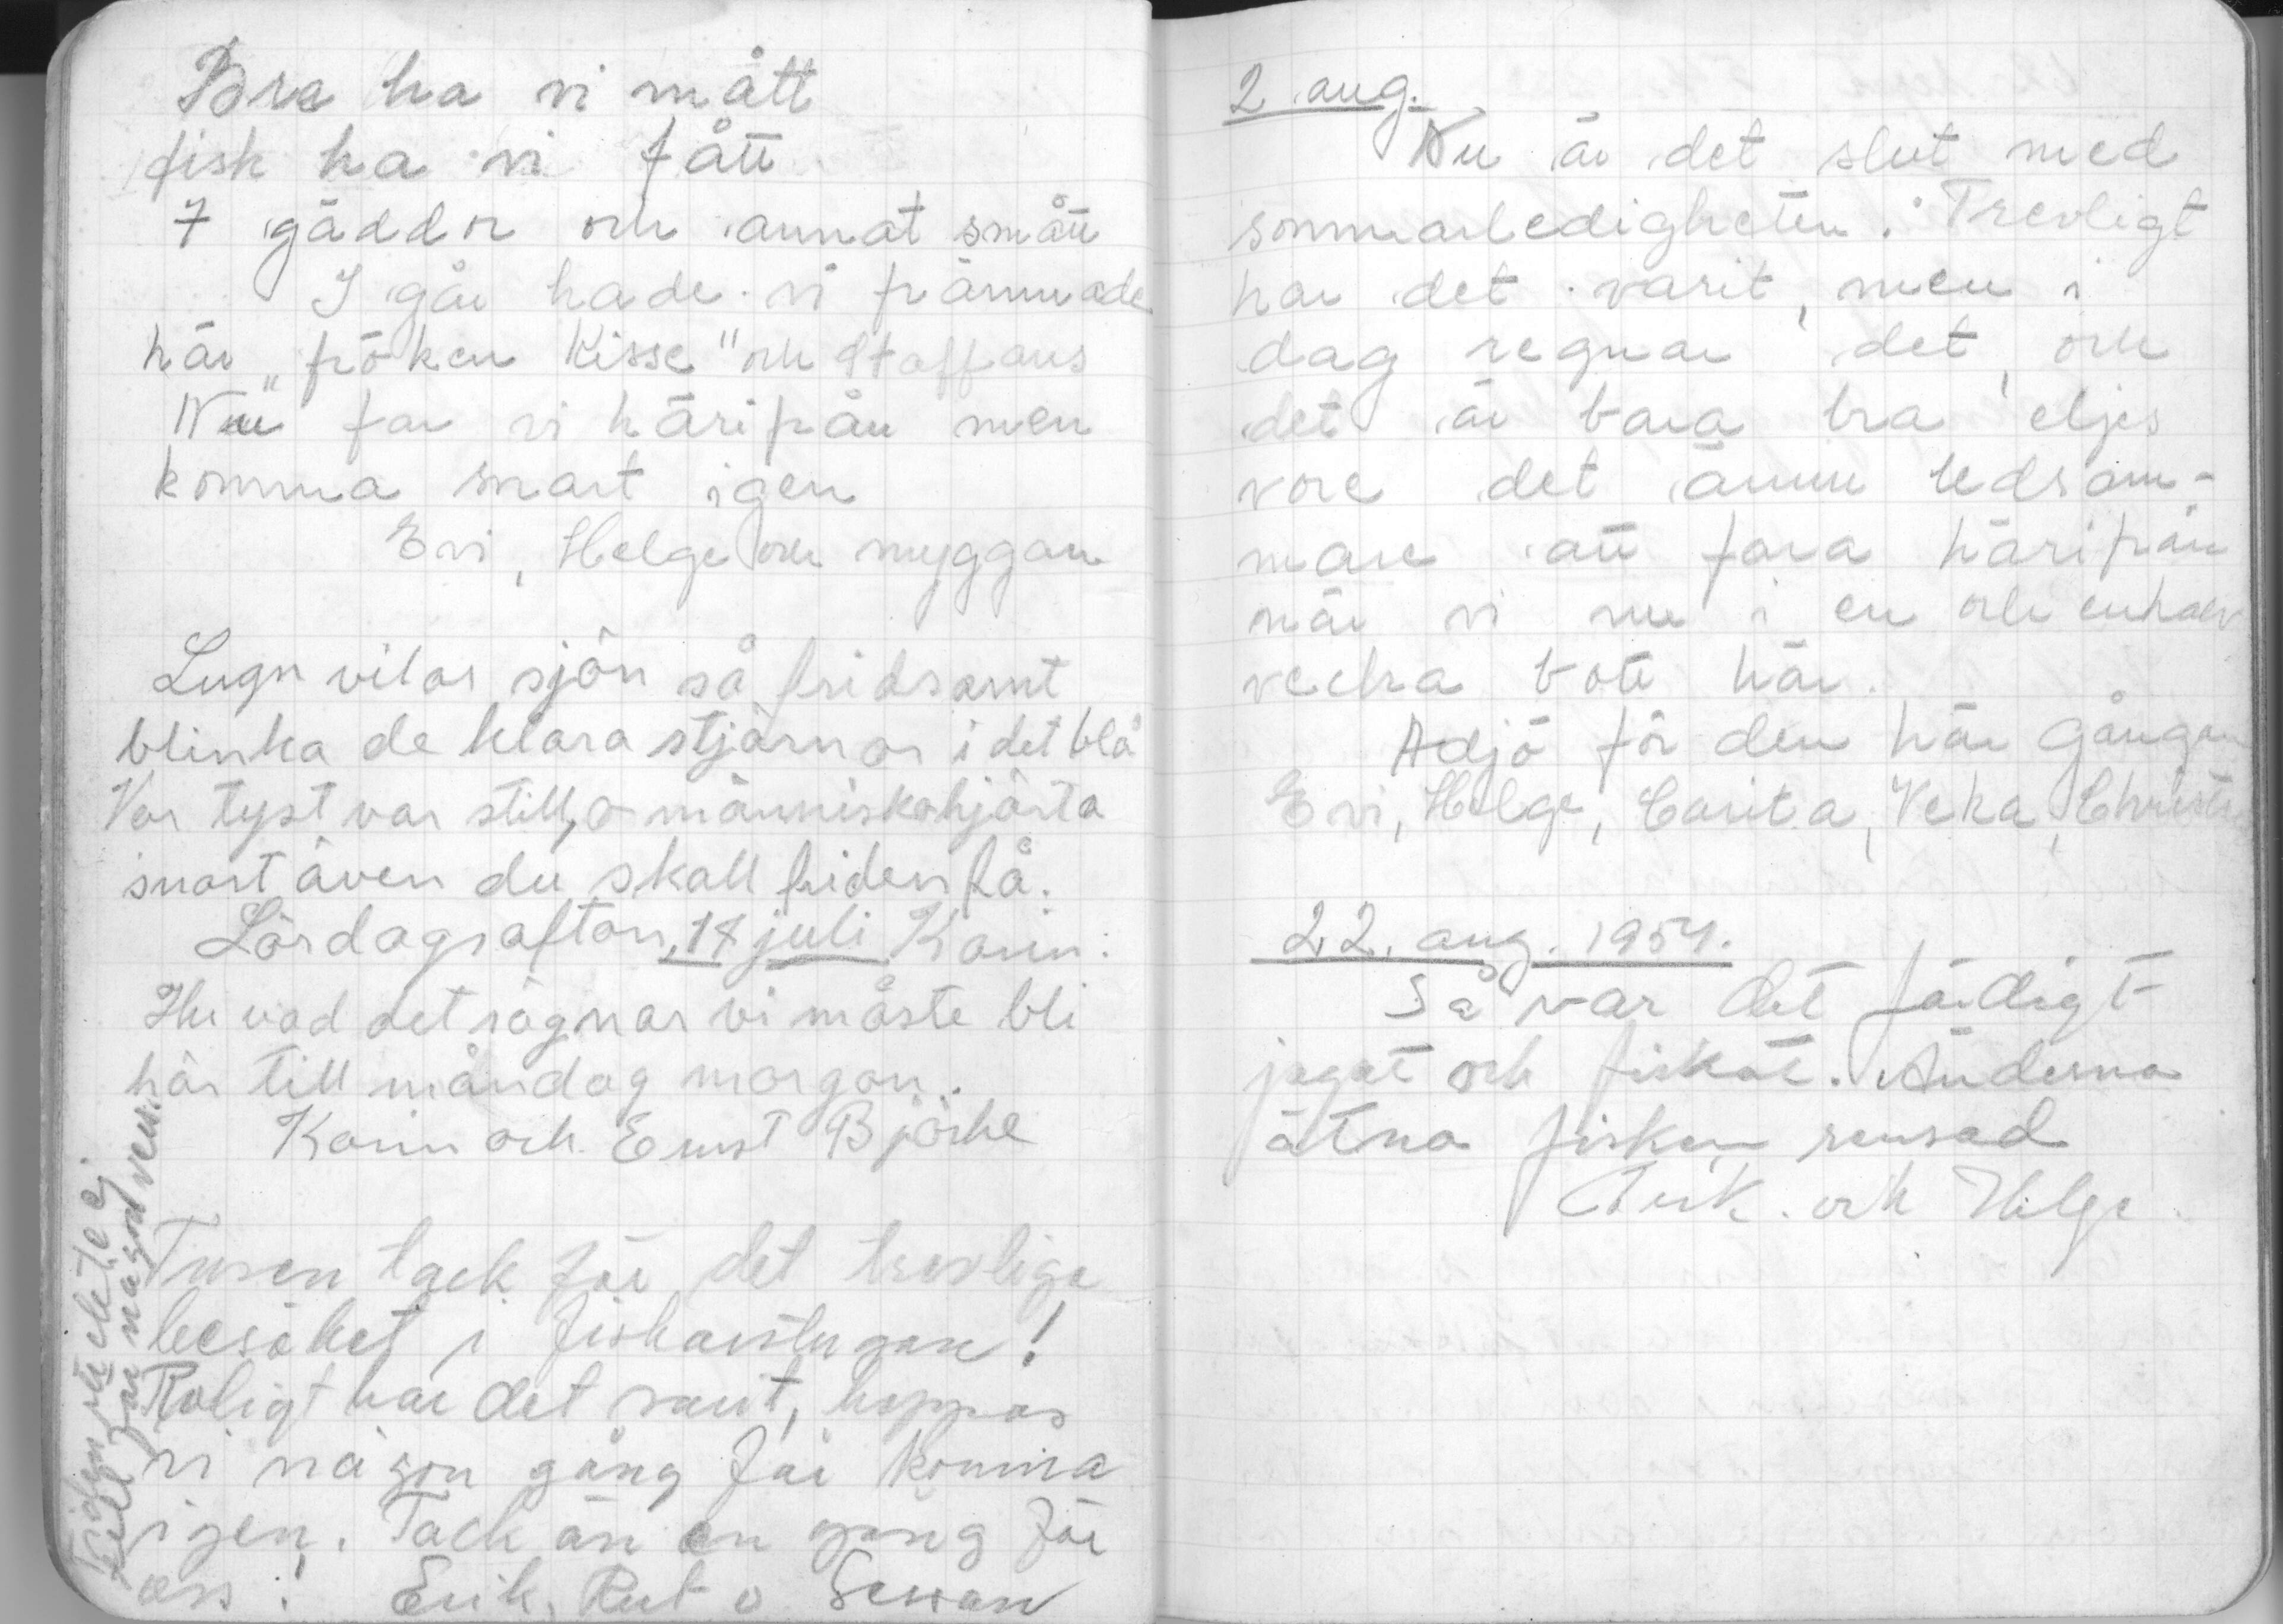 Bra ha vi mått
fisk ha vi fått
7 gäddor och annat smått
I går hade vi främmade
här „fröken Kisse" och Staffans
Nu far vi härifrån men
komma snart igen
Evi, Helge och myggan
Lugn vilar sjön så fridsamt
blinka de klara stjärnor i det blå
Var tyst var still, o människohjärta
snart även du skall friden få.
Lördagsafton, 17 juli Karin:
Hu vad det rägnar vi måste bli
här till måndag morgon.
Karin och Ernst Björke
Tusen tack för det trevliga
besöket i fiskarstugan!
Roligt har det varit, hoppas
vi någon gång får komma
igen. Tack än en gång för
oss! Erik, Rut o Sessan
Tiden räckte ej
till för någon vers.
2 aug.
Nu är det slut med
sommarledigheten. Trevligt
har det varit, men i
dag regnar det, och
det är bara bra eljes
vore det ännu ledsam-
mare att fara härifrån
när vi nu i en och enhalv
vecka bott här.
Adjö för den här gången
Evi, Helge, Carita, Veka, Christer
22. aug. 1954.
Så var det färdigt
jagat och fiskat. Änderna
ätna fisken rensad
och Helge.